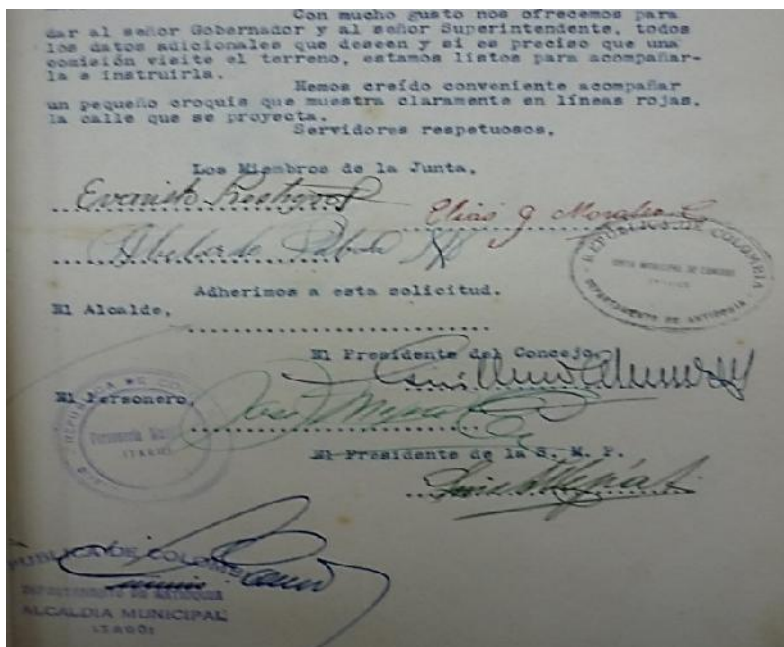 Con mucho gusto nos ofrecemos para
dar al señor Gobernador y al señor Superintendente, todos
los datos adicionales que deseen y si es preciso que una
comisión visite el terreno, estamos listos para acompañar-
la e instruirla.
Hemos creído conveniente acompañar
un pequeño croquis que muestra claramente en líneas rojas,
la calle que se proyecta.
Servidores respetuosos,
Los Miembros de la Junta,
Evaristo Restrepo
Elías G Morales
Abelardo
REPUBLICA DE COLOMBIA
JUNTA MUNICIPAL DE CAMINOS
DEPARTAMENTO DE ANTIOQUIA
Adherimos a esta solicitud.
El Alcalde,
El Presidente del Concejo,
El Personero,
REPUBLICA DE CO
Personería
ITAGUI
José
El Presidente de la S. M. P.
Luis
PUBLICA DE COLOMBIA
DEPARTAMENTO DE ANTIOQUIA
ALCALDIA MUNICIPAL
ITAGUI